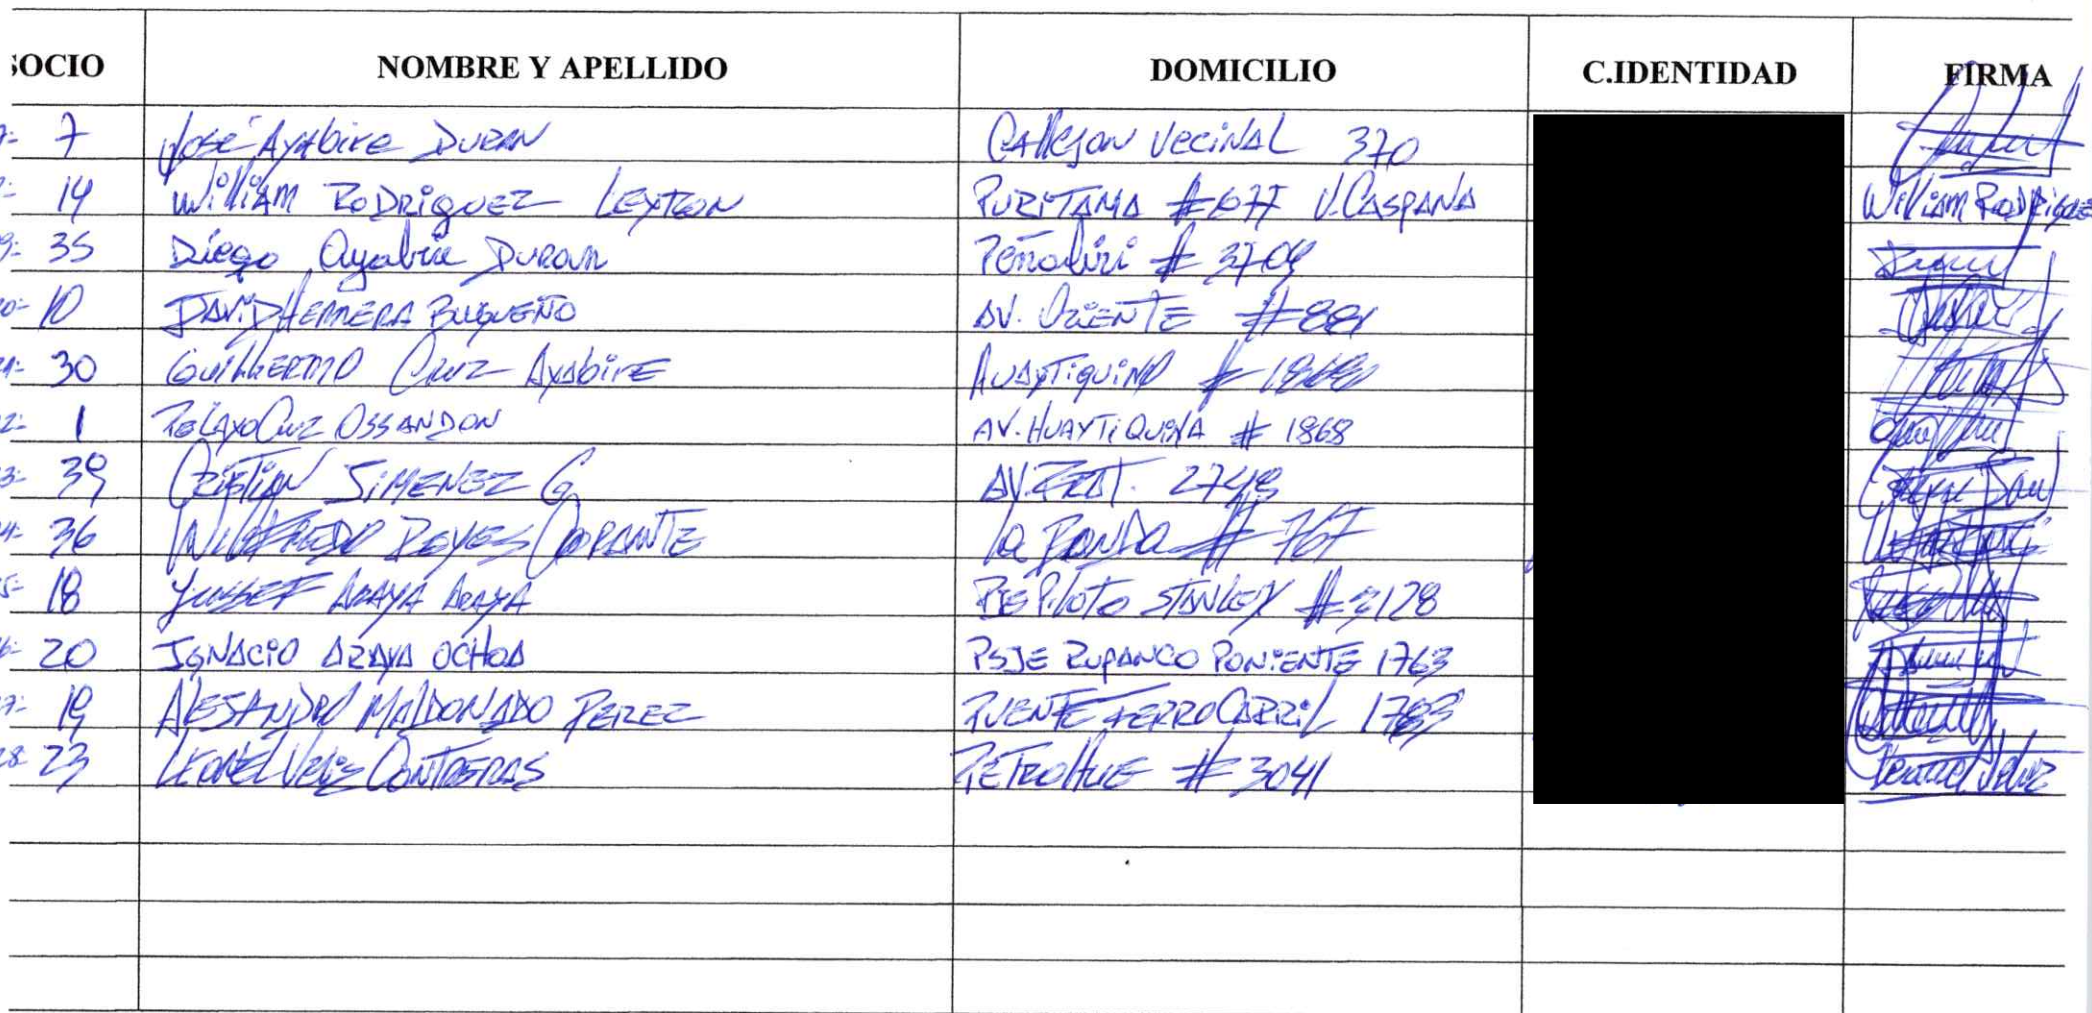 SOCIO NOMBRE Y APELLIDO DOMICILIO C.IDENTIDAD FIRMA
7 José Ayabire Duran Callejon Vecinal 370
14 William Rodriguez Leyton Puritama #677 V. Caspana William Rodriguez
35 Diego Ayabire Duran Peñaliri # 3704
10 David Herrera Bugueño Av. Oriente #881
30 Guillermo Cruz Ayabire Huaytiquina #
1 Pelayo Cruz Ossandon AV. HUAYTIQUINA # 1868
39 Cristian Simenez G Av. Prat. 2748
36 Wilfredo Reyes la Banda # 767
18 Yussef Araya Araya Piloto Stanley # 3128
20 Ignacio Araya Ochoa Psje Rupanco Poniente 1763
19 Alejandro Maldonado Perez Puente Ferrocarril 1783
23 Leonel Veliz Contreras Petrohue # 3041